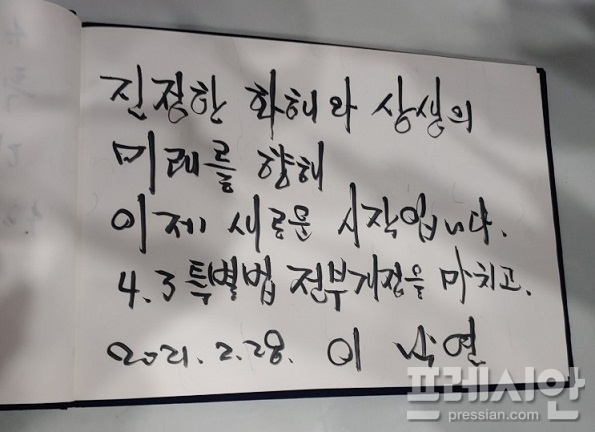 진정한 화해와 상생의
미래를 향해
이제 새로운 시작입니다.
4.3 특별법 전부개정을 마치고.
2021. 2. 28. 이 낙연
프레시안
pressian.com